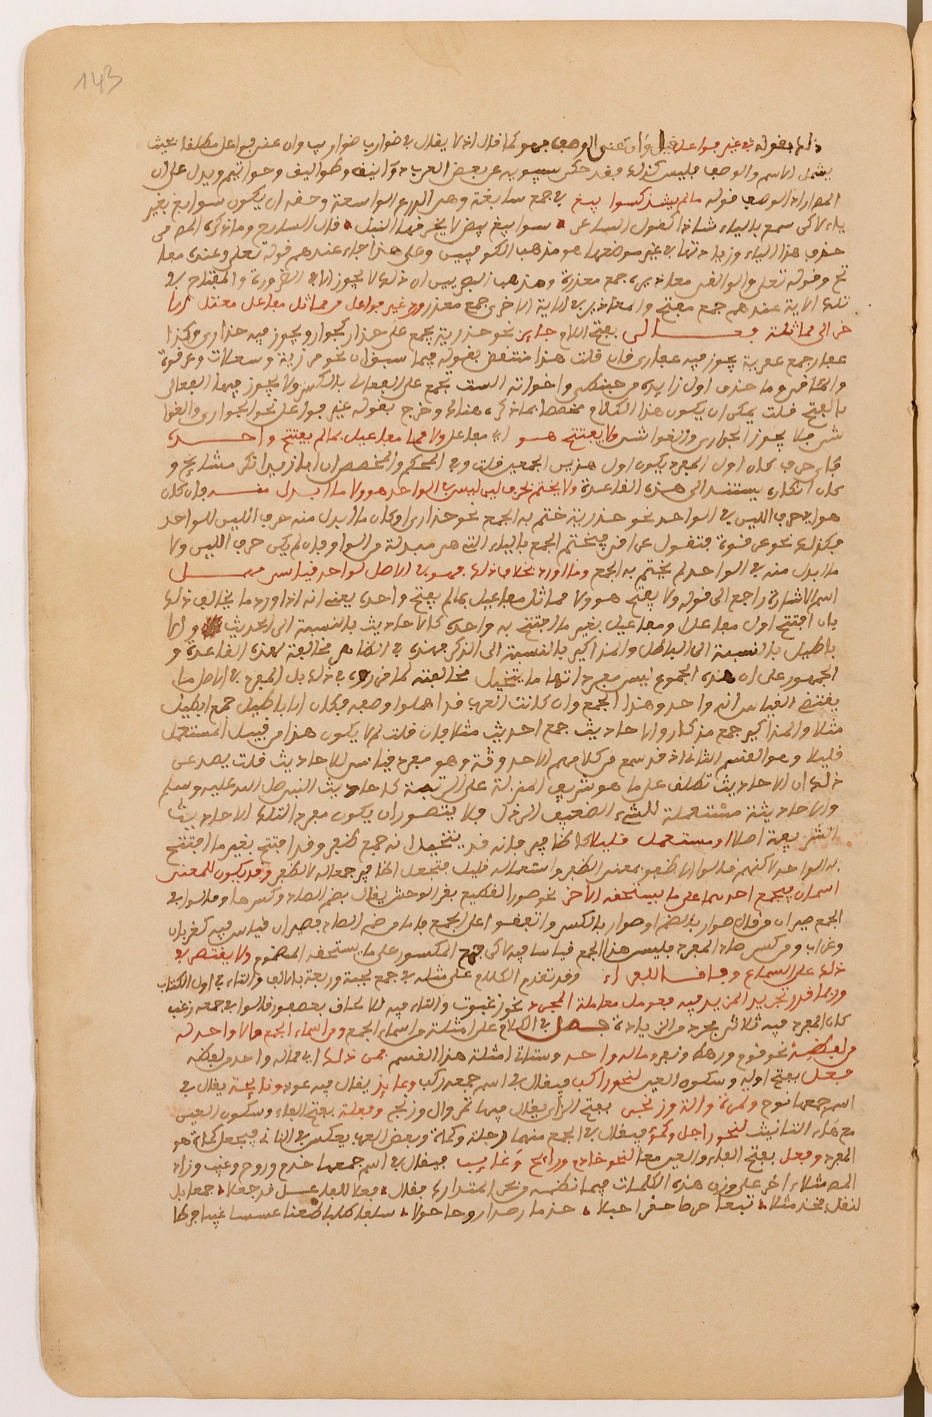 143
بقوله في غير فواعل قيل وان عنى الوصف فهو كما قال اذ لا يقال في ضوارب ضواريب وان عنى فواعل مطلقا بحيث
يشمل الاسم والوصف فليس كذلك فقد حكى سيبويه عن بعض العرب دوانيق وطوابيق وخواتيم ويدل على ان
المصنف اراد الوصف قوله ما لم يشذ كسوابيغ في جمع سابغة وهي الدرع الواسعة وحقه ان يكون سوابغ بغير
ياء لاكن سمع بالياء شاذا كقول الشاعر سوابيغ بيض لا يخرقها النبل قال الشارح وما ذكره المصنف من
حذف هذا الياء وزيادتها في غير موضعها هو مذهب الكوفيين وعلى هذا جاء عندهم قوله تعلى وعنده مفا
تح وقوله تعلى ولو القى معاذيره جمع معذرة ومذهب البصريين ان ذلك لا يجوز الا في الضرورة والمفاتح في
تلك الاية عندهم جمع مفتح والمعاذير في الاية الاخرى جمع معذار
حرف الى مماثلة فعالى بفتح اللام جايز نحو حذرية يجمع على حذار كجوار ويجوز فيه حذارى وكذا
عفار جمع عفرية يجوز فيه عفارى فان قلت هذا منتقض بقوله فيما سبق ان نحو هبرية وسعلاة وعرقوة
والماقى وما حذف اول زايديه من حبنطى واخواته الست يجمع على الفعالى بالكسر ولا يجوز فيها الفعالى
بالفتح قلت يمكن ان يكون هذا الكلام مخصصا بما ذكره هنالك وخرج بقوله غير فواعل نحو الجوارى والغوا
شى فلا يجوز الجوارى والغواشى ولا يفتتح هو اي مفاعل ولا مفاعيل بما لم يفتتح واحده
فاى حرف كان اول المفرد يكون اول هذين الجمعين قلت وفي المحكم والمخصص ان ابا زيد انكر مشايخ و
كان انكاره يستند الى هذه القاعدة ولا يختم بحرف لين ليس في الواحد هو ولا ما ابدل منه فان كان
هو اي حرف اللين في الواحد نحو حذرية ختم به الجمع نحو حذارى وكان ما ابدل منه حرف اللين للواحد
فكذلك نحو عرقوة فتقول عراقى فيختتم الجمع بالياء التي هي مبدلة من الواو فان لم يكن حرف اللين ولا
ما ابدل منه في الواحد لم يختم به الجمع وما اورد بخلاف ذلك فهو في الاصل لواحد قياسي مهمل
اسم الاشارة راجع الى قوله ولا يفتح هو ولا مماثل مفاعيل بما لم يفتح واحده يعنى انه اذا ورد ما يخالف ذلك
بان افتتح اول مفاعل او مفاعيل بغير ما افتتح به واحده كالاحاديث بالنسبة الى الحديث والا
باطيل بالنسبة الى الباطل والمذاكير بالنسبة الى الذكر فهذه في الظاهر مخالفة لهذه القاعدة و
الجمهور على ان هذه الجموع ليس مفرداتها ما يتخيل مخالفته لما قررناه في ذلك بل المفرد في الاصل ما
يقتضى القياس انه واحد وهذا الجمع وان كانت العرب قد اهملوا وضعه فكان اباطيل جمع ابطيل
مثلا والمذاكير جمع مذكار والاحاديث جمع احديث مثلا فان قلت لم لا يكون هذا من قبيل المستعمل
قليلا وهو القسم الثاني اذ قد سمع من كلامهم الاحدوثة وهو مفرد قياسي للاحاديث قلت يبعد عن
ذلك ان الاحاديث تطلق على ما هو شريف المنزلة على الرتبة كاحاديث النبي صلى الله عليه وسلم
والاحدوثة مستعملة للشيء الضعيف الرذل فلا يتصور ان يكون مفرد التلك الاحاديث
الشريفة اصلا او مستعمل قليلا كاظافير فانه قد يتخيل انه جمع ظفر وقد افتتح بغير ما افتتح
به الواحد لاكنهم قالوا اظفور بمعنى الظفر واستعماله قليل فتجعل اظافير جمعا له لا لظفر وقد يكون للمعنى
اسمان فيجمع احدهما على ما يستحقه الاخر نحو صور القطيع بقر الوحش يقال بضم الصاد وكسرها وقالوا في
الجمع صيران فمن قال صوار بالضم او صوار بالكسر واتفقوا على الجمع فاما من ضم الصاد فصيران قياس فيه كغربان
وغراب ومن كسر صاد المفرد فليس هذا الجمع قياسا فيه لاكن جمع المكسور على ما يستحقه المضموم ولا يقتصر في
ذلك على السماع وفاقا للفراء وقد تقدم الكلام على مثله في جمع لجبة وربعة بالالف والتاء في اول الكتاب
وربما قدر تجريد المزيد فيه فعومل معاملة المجرد نحو عنكبوت والتاء فيه للالحاق بعصفور قالوا في جمعه زغب
كان المفرد فيه ثلاثي مجرد من الزيادة فصل في الكلام على امثلة من اسماء الجمع ومن اسماء الجمع ما لا واحد له
من لفظه نحو قوم ورهط ونفر وما له واحد وستاتى امثلة هذا القسم فمن ذلك اي مما له واحد من لفظه
فعل بفتح اوله وسكون العين لنحو راكب فيقال في اسم جمعه ركب وعايذ يقال فيه عوذ ونايحة يقال في
اسم جمعها نوح وثمرة والة وزنجى بفتح الزاى يقال فيها ثمر وال وزنج وفعلة بفتح الفاء وسكون العين
مع هاء التانيث لنحو راجل وكمء فيقال في الجمع منهما رجلة وكماة وبعض العرب يعكس في الثاني فيجعل كماة هو
المفرد وفعل بفتح الفاء والعين معا لنحو خادم ورايح وغايب فيقال في اسم جمعها خدم وروح وغيب وزاد
المصنف مثلا اخر على وزن هذه الكلمات فيما نظمه